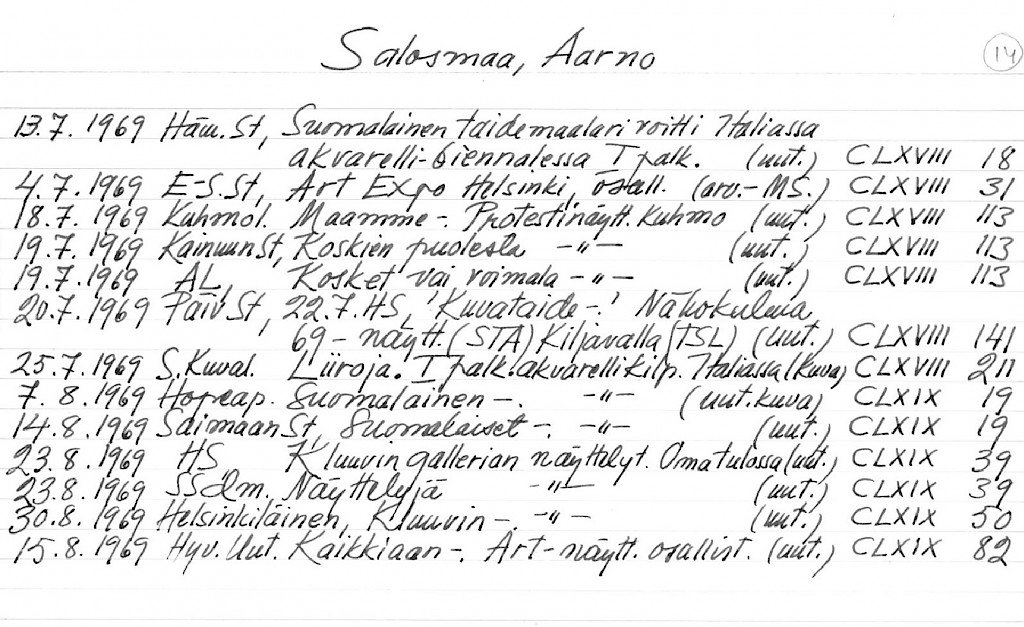 Salosmaa, Aarno
14
13.7. 1969 Häm. St, Suomalainen taidemaalari voitti Italiassa
akvarelli-biennalessa I palk. (uut.) CLXVIII 18
4.7. 1969 E-S. St, Art Expo Helsinki, osall. (arv.- MS.) CLXVIII 31
18.7. 1969 Kuhmol. Maamme -. Protestinäytt. Kuhmo (uut.) CLXVIII 113
19.7. 1969 Kainuun St, Koskien puolesta -"- (uut.) CLXVIII 113
19.7. 1969 AL, Kosket vai voimala -"- (uut.) CLXVIII 113
20.7. 1969 Päiv St, 22.7. HS, 'Kuvataide -.' Näkökulma
69 - näytt. (STA) Kiljavalla (TSL) (uut.) CLXVIII 141
25.7. 1969 S. Kuval. I palk. akvarellikilp. Italiassa (kuva) CLXVIII 211
7. 8. 1969 Hopeap. Suomalainen -. -"- (uut. kuva) CLXIX 19
14.8. 1969 Saimaan St, Suomalaiset -. -"- (uut.) CLXIX 19
23.8. 1969 HS Kluuvin gallerian näyttelyt. Omatulossa (uut.) CLXIX 39
23.8. 1969 SSdm. Näyttelyjä -"- (uut.) CLXIX 39
30.8. 1969 Helsinkiläinen, Kluuvin -. -"- (uut.) CLXIX 50
15.8. 1969 Hyv. Uut. Kaikkiaan -. Art-näytt. osallist. (uut.) CLXIX 82